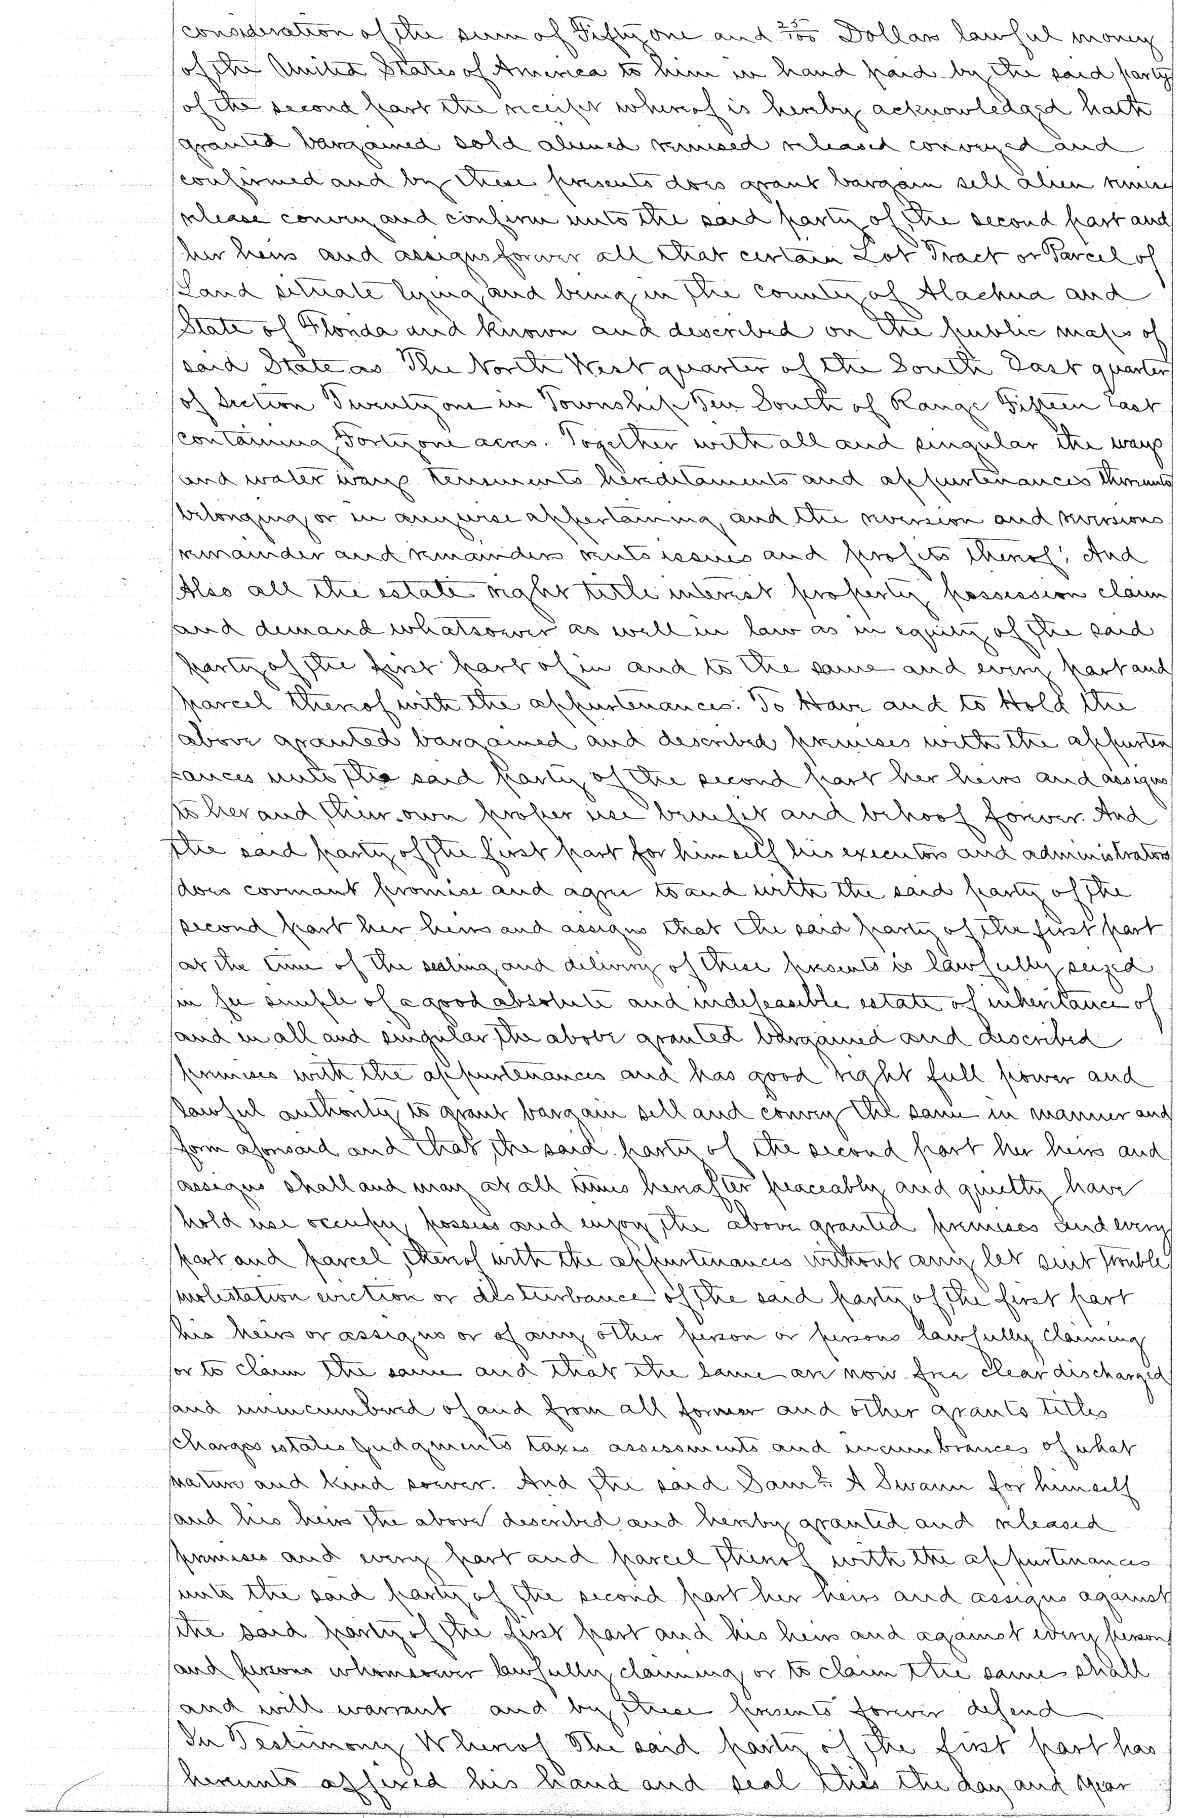 consideration of the sum of Fifty one and 25/100 Dollars lawful money
of the United States of America to him in hand paid by the said party
of the second part the receipt whereof is hereby acknowledged hath
granted bargained sold aliened remised released conveyed and
confirmed and by these presents does grant bargain sell alien remise
release convey and confirm unto the said party of the second part and
her heirs and assigns forever all that certain Lot Tract or Parcel of
Land situate lying and being in the county of Alachua and
State of Florida and known and described on the public maps of
said State as The North West quarter of the South East quarter
of Section Twenty one in Township Ten South of Range Fifteen East
containing Forty one acres. Together with all and singular the ways
and water ways tenements hereditaments and appurtenances thereunto
belonging or in any wise appertaining, and the reversion and reversions
remainder and remainders rents issues and profits thereof; And
Also all the estate right title interest property possession claim
and demand whatsoever as well in law as in equity of the said
party of the first part of in and to the same and every part and
parcel thereof with the appurtenances. To Have and to Hold the
above granted bargained and described premises with the appurten
ances unto the said party of the second part her heirs and assigns
to her and their own proper use benefit and behoof forever. And
the said party of the first part for himself his executors and administrators
does covenant promise and agree to and with the said party of the
second part her heirs and assigns that the said party of the first part
at the time of the sealing and delivery of these presents is lawfully seized
in fee simple of a good absolute and indefeasible estate of inheritance of
and in all and singular the above granted bargained and described
premises with the appurtenances and has good right full power and
lawful authority to grant bargain sell and convey the same in manner and
form aforesaid and that the said party of the second part her heirs and
assigns shall and may at all times hereafter peaceably and quietly have
hold use occupy possess and enjoy the above granted premises and every
part and parcel thereof with the appurtenances without any let suit trouble
molestation eviction or disturbance of the said party of the first part
his heirs or assigns or of any other person or persons lawfully claiming
or to claim the same and that the same are now free clear discharged
and unincumbered of and from all former and other grants titles
charges estates judgments taxes assessments and incumbrances of what
nature and kind soever. And the said Saml. A Swann for himself
and his heirs the above described and hereby granted and released
premises and every part and parcel thereof with the appurtenances
unto the said party of the second part her heirs and assigns against
the said party of the first part and his heirs and against every person
and persons whomsoever lawfully claiming or to claim the same shall
and will warrant and by these presents forever defend
In Testimony Whereof The said party of the first part has
hereunto affixed his hand and seal this the day and year